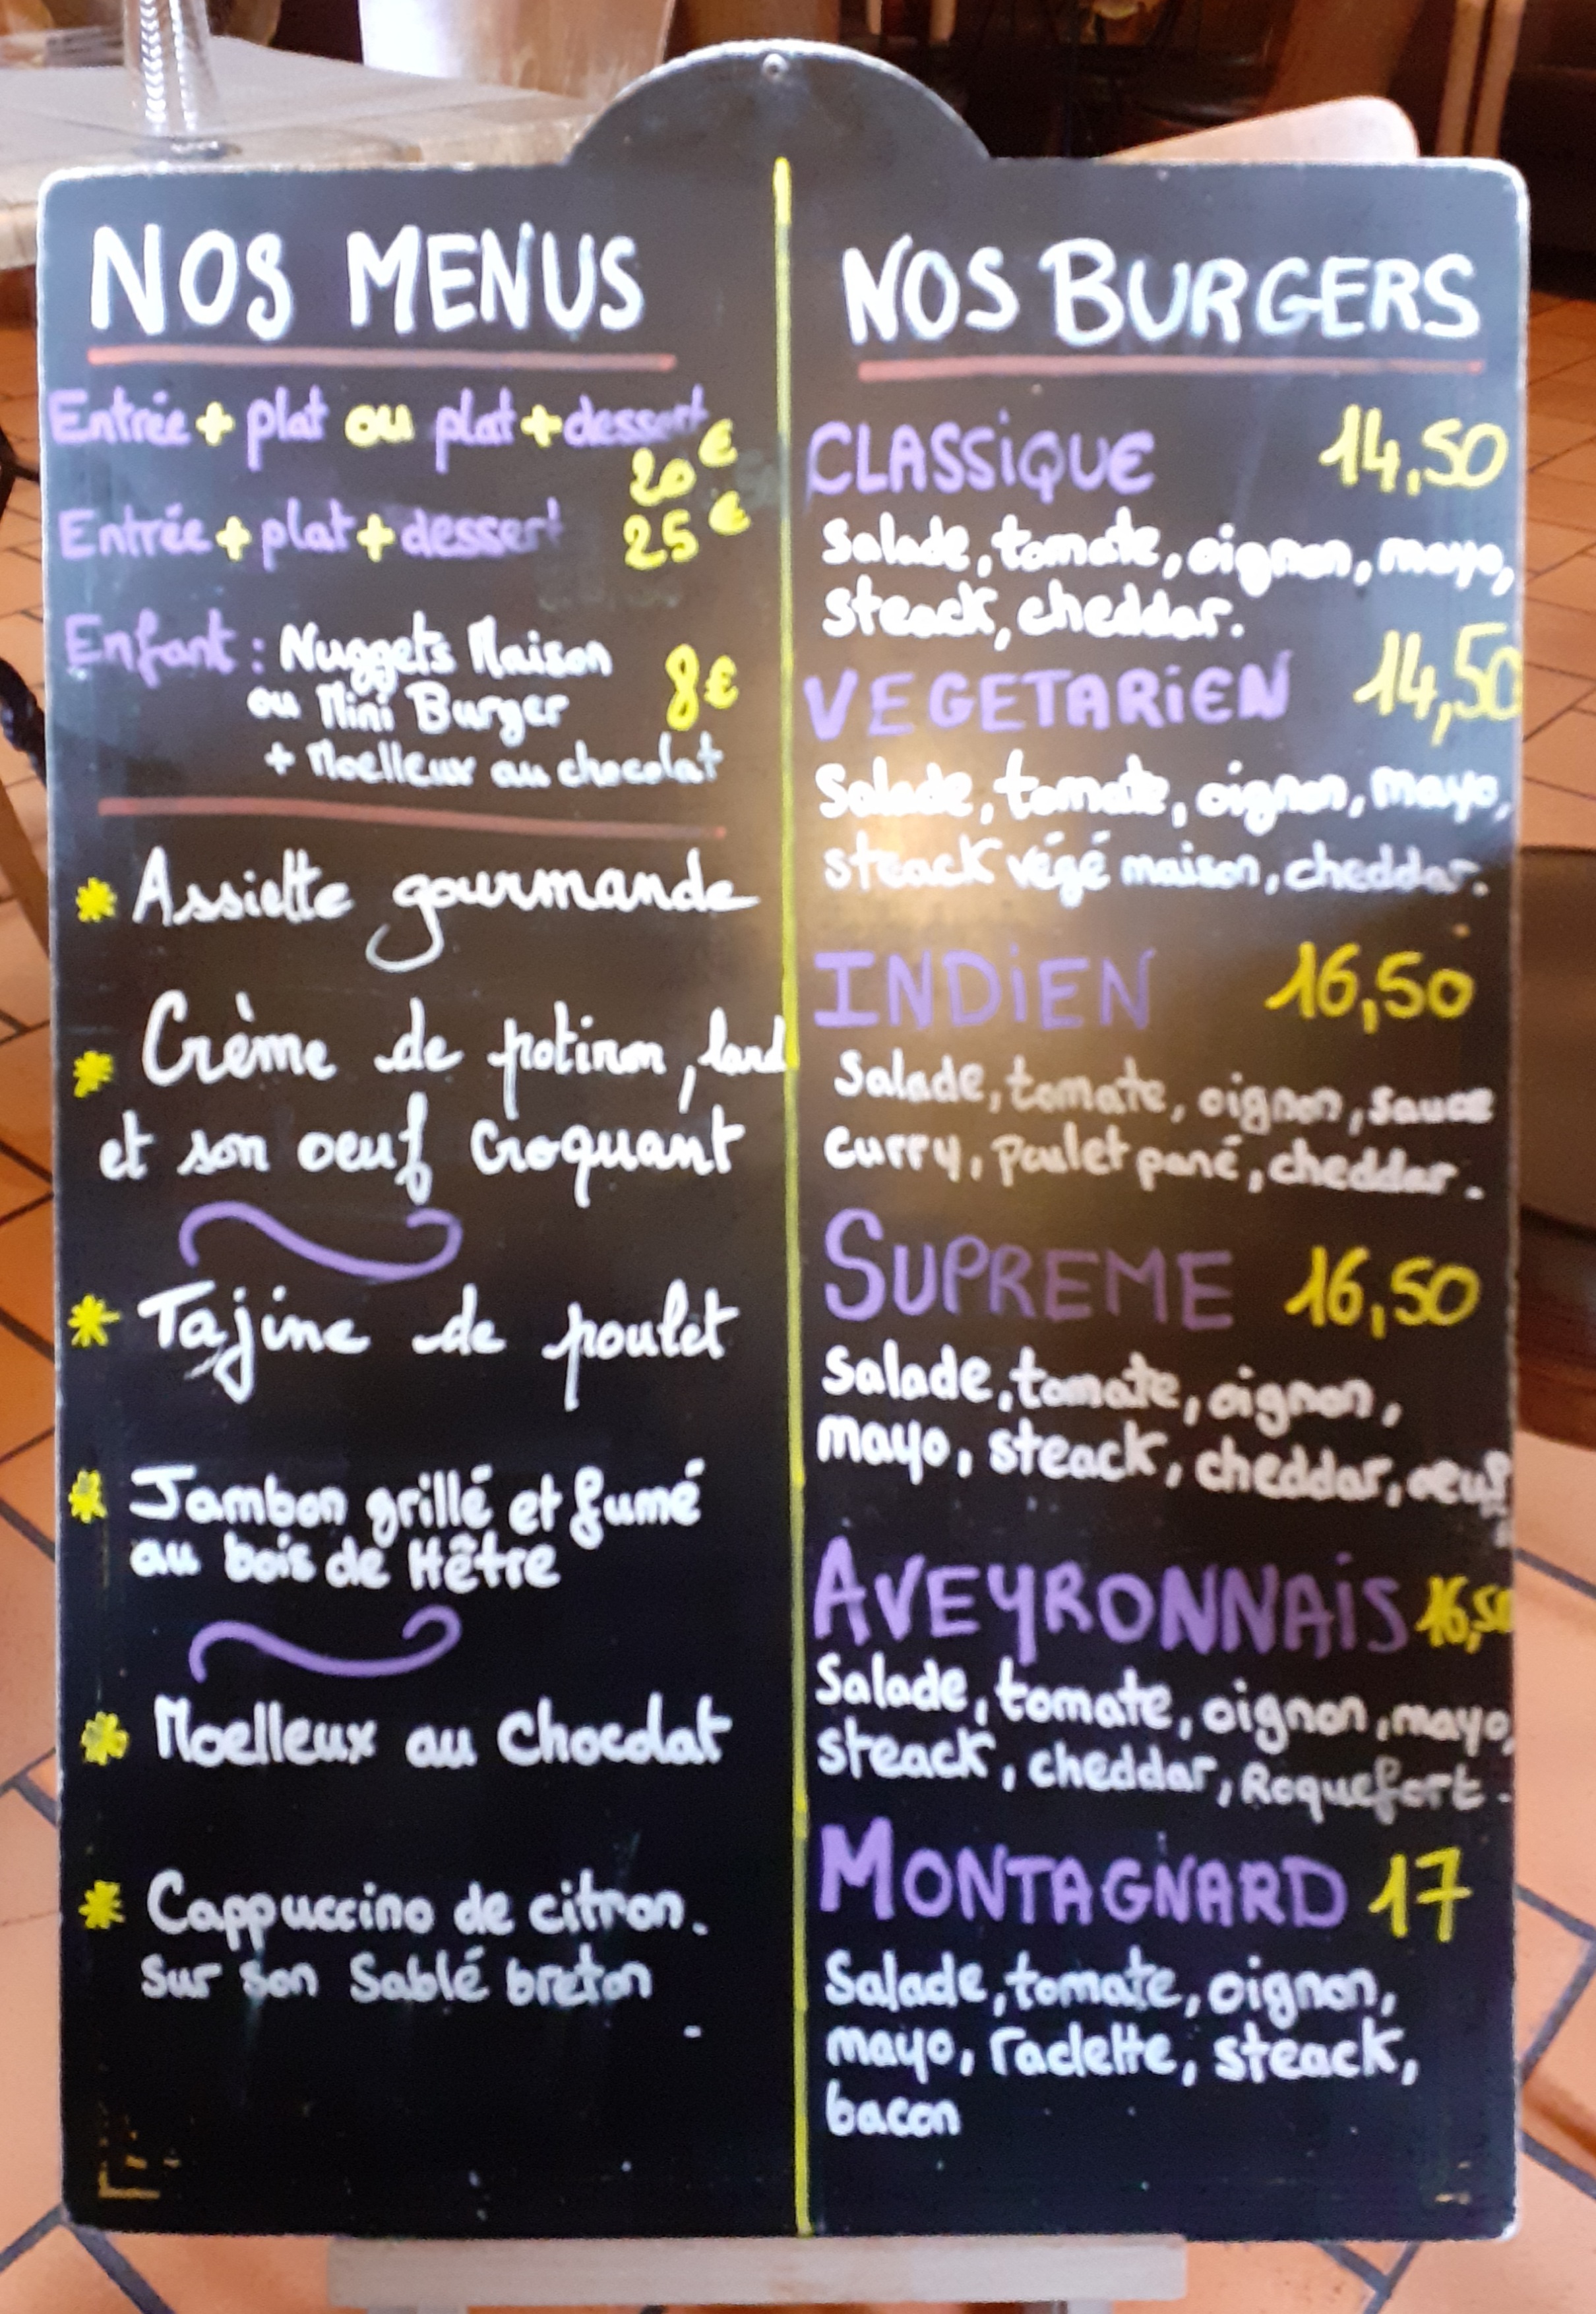 NOS MENUS
Entrée + plat ou plat + dessert
20€
Entrée + plat + dessert 25€
Enfant : Nuggets Maison
ou Mini Burger 8€
+ Moelleux au chocolat
* Assiette gourmande
* Crème de potiron, lard
et son oeuf croquant
* Tajine de poulet
* Jambon grillé et fumé
au bois de Hêtre
* Moelleux au chocolat
* Cappuccino de citron.
sur son Sablé breton
NOS BURGERS
CLASSiQUE 14,50
Salade, tomate, oignon, mayo,
steack, cheddar.
VEGETARiEN 14,50
Salade, tomate, oignon, mayo,
steack végé maison, cheddar.
INDiEN 16,50
Salade, tomate, oignon, sauce
curry, poulet pané, cheddar.
SUPREME 16,50
Salade, tomate, oignon,
mayo, steack, cheddar, oeuf
AVEYRONNAiS 16,50
Salade, tomate, oignon, mayo,
steack, cheddar, Roquefort.
MONTAGNARD 17
Salade, tomate, oignon,
mayo, raclette, steack,
bacon